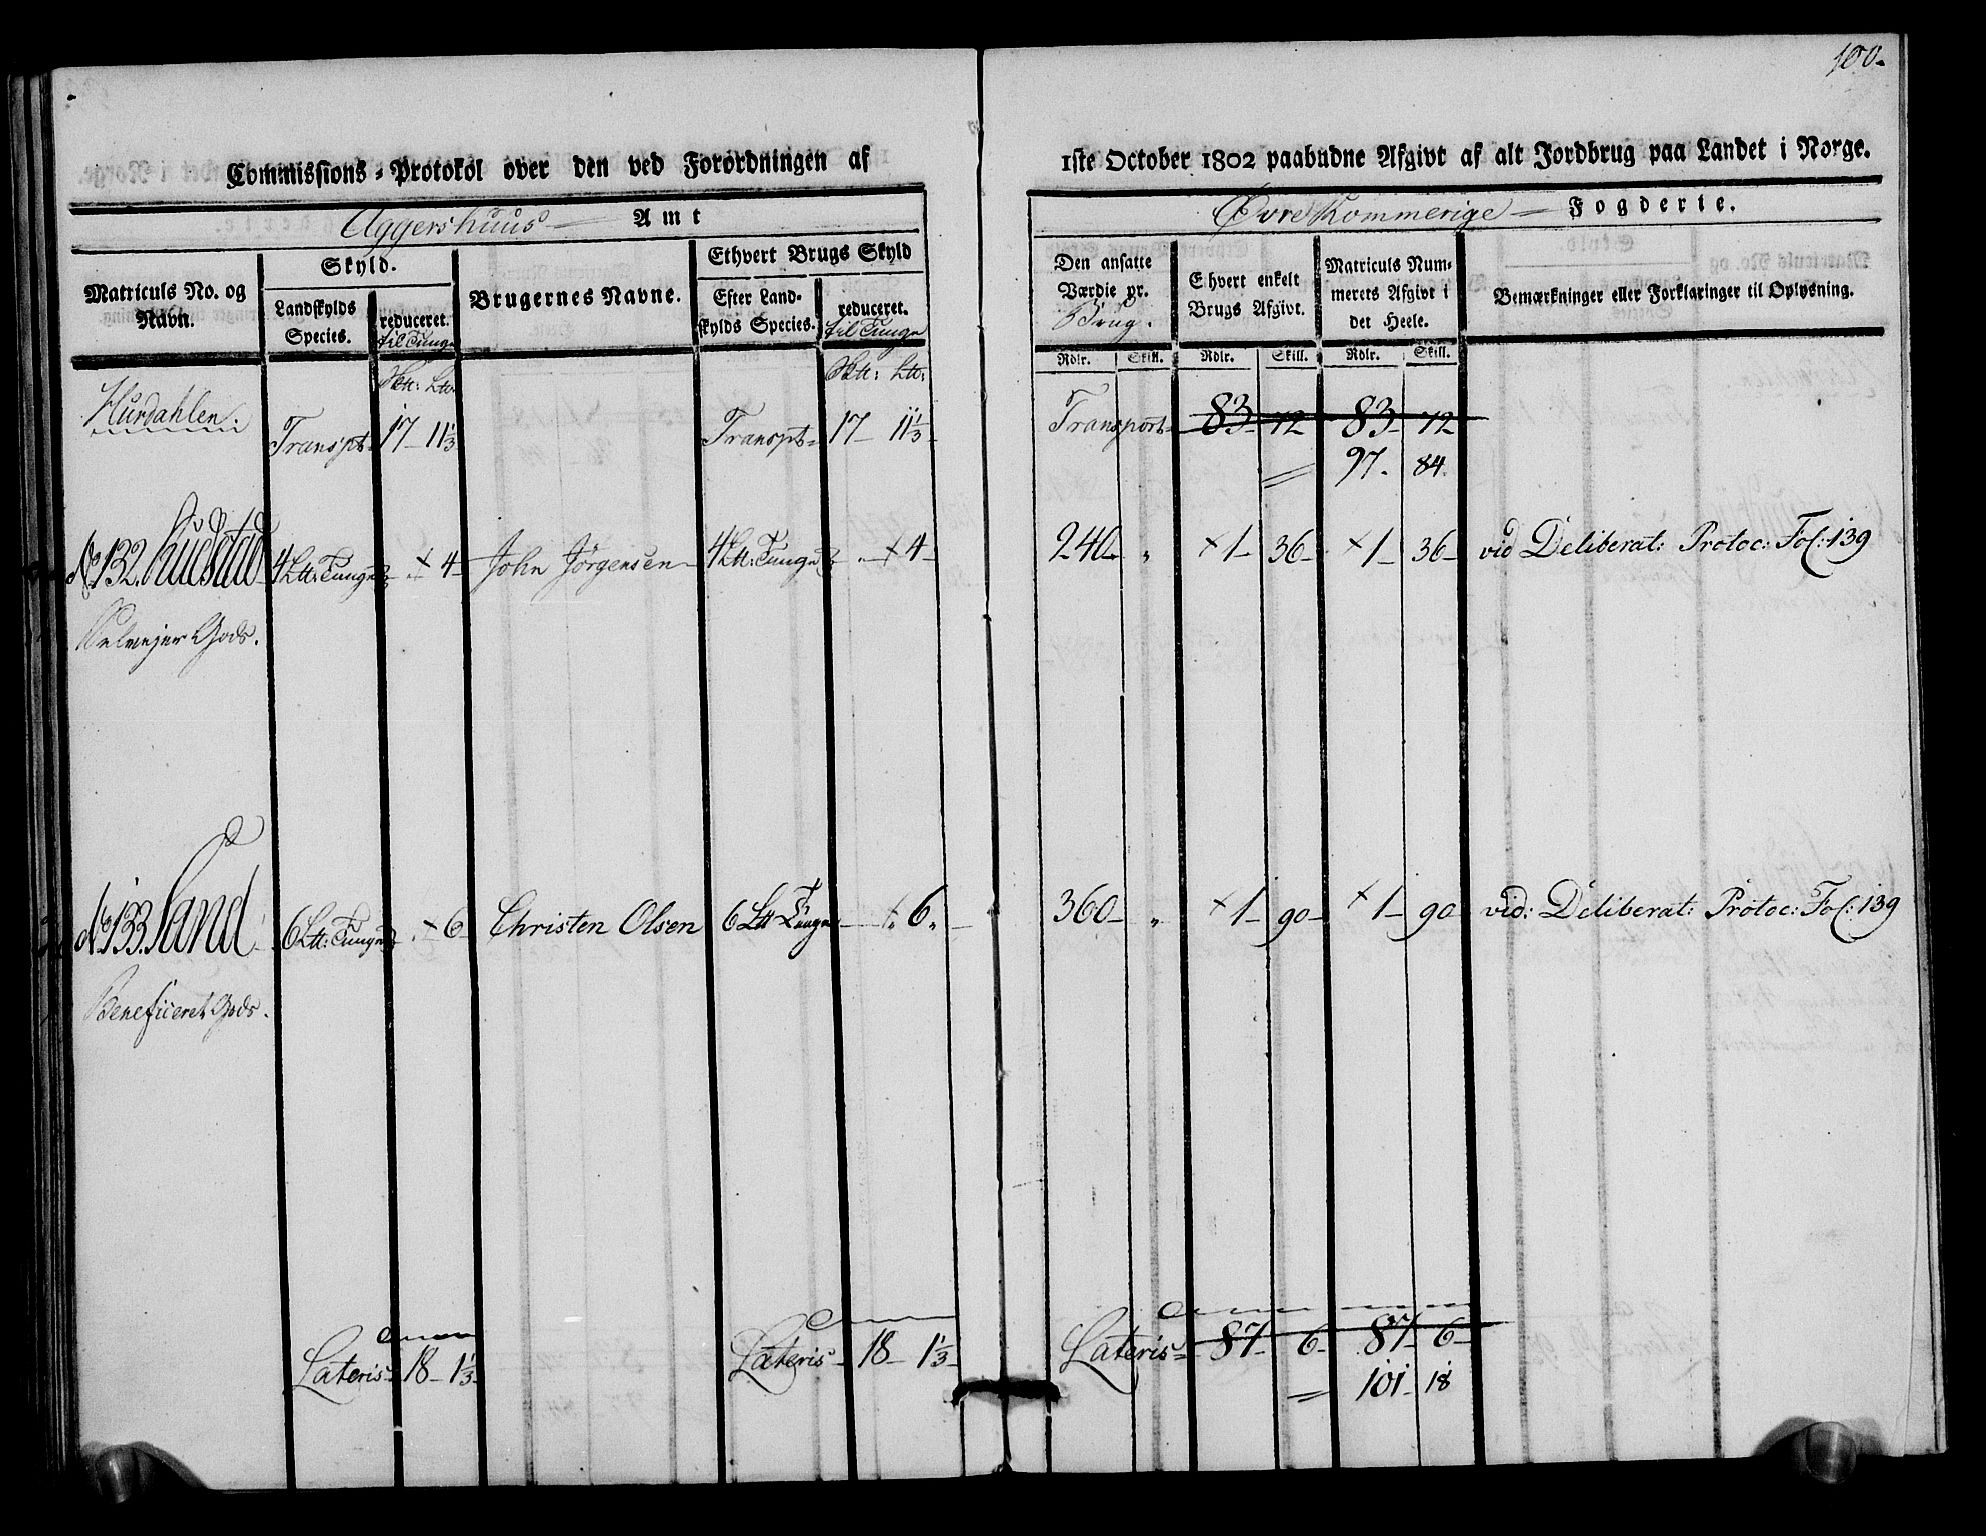 100.
Commissions-Protokol over den ved Forordningen af 1ste October 1802 paabudne Afgivt af alt Jordbrug paa Landet i Norge.
Aggershuus Amt
Øvre Rommerige Fogderie.
Matriculs No. og Navn.
Skyld.
Landskylds Species.
reduceret.
til Tunge
Brugernes Navne.
Ethvert Brugs Skyld
Efter Landskylds Species.
reduceret.
til Tunge
Den ansatte Værdie pr.
Brug.
Ehvert enkelt Brugs Afgivt.
Matriculs Nummerets Afgivt i det Heele.
Bemærkninger eller Forklaringer til Oplysning.
Rdlr. Skill. Rdlr. Skill. Rdlr. Skill.
Hurdahlen.
Transpt 17 11⅓ Transpt 17 11⅓ Transport 83 72 83 72
97. 84.
No 132. Rustad 4 Ltt: Tunge × 4 John Jørgensen 4 Ltt: Tunge × 4 240 " × 1 36 × 1 36 vid Deliberat: Protoc: Fol: 139
Selvejer Gods.
No 133. Sand 6 Ltt: Tunge × 6 Christen Olsen 6 Ltt Tunge 6 360 " × 1 90 × 1 90 vid: Deliberat: Protoc: Fol: 139
Beneficeret Gods.
Lateris 18 1⅓ Lateris 18 1⅓ Lateris 87 6 87 6
101 18